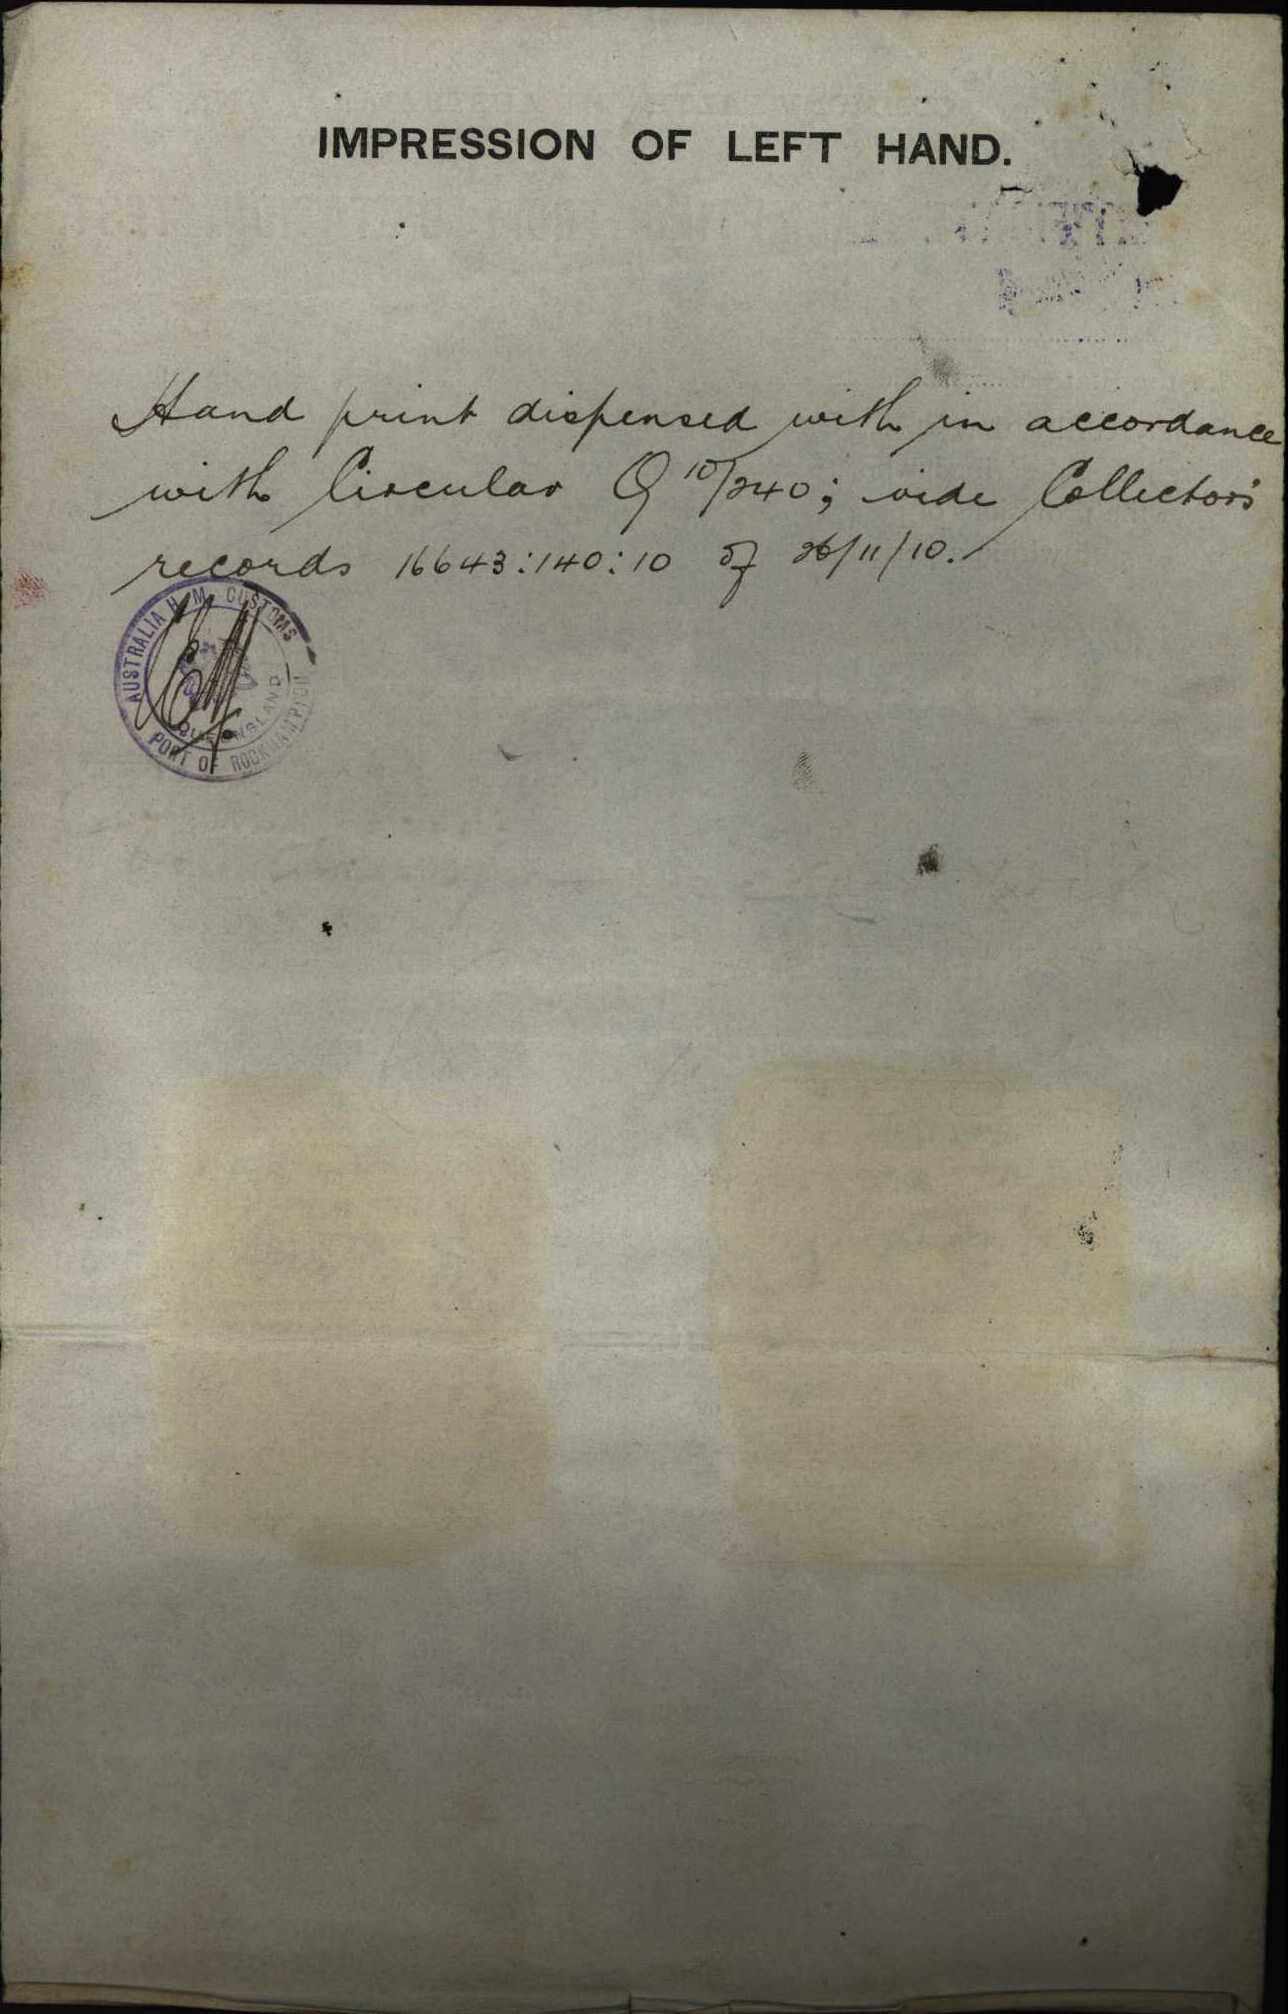 IMPRESSION OF LEFT HAND.
Hand print dispensed with in accordance
with Circular Q 10/240; vide Collector's
records 16643:140:10 of 26/11/10.
AUSTRALIA H. M. CUSTOMS
QUEENSLAND
PORT OF ROCKHAMPTON